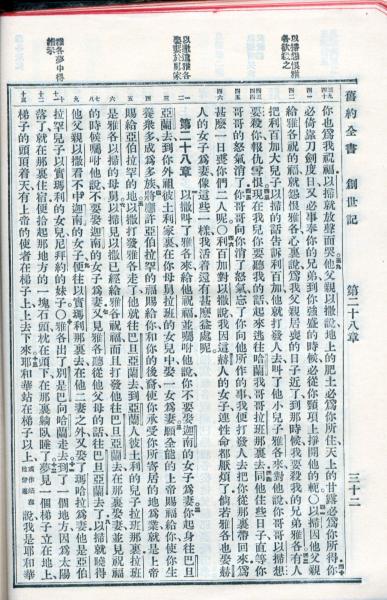 以掃怨恨雅
各欲殺之
以撒遣雅各
娶妻於舅家
雅各夢中得
舊約全書 創世記 第二十八章 三十二
你也爲我祝福以掃就放聲而哭他父親以撒說地上的肥土必爲你所住天上的甘露必爲你所得你
必倚靠刀劍度日又必事奉你的兄弟到你強盛的時候必從你頸項上掙開他的軛〇以掃因他父親
給雅各祝的福就怨恨雅各心裏說爲我父親居喪的日子近了到那時候我要殺我的兄弟雅各有人
把利百加大兒子以掃的話告訴利百加他就打發人去叫了他小兒子雅各來對他說你哥哥以掃想
要殺你報仇雪恨現在我兒你要聽我的話起來逃往哈蘭我哥哥拉班那裏去同他住些日子直等你
哥哥的怒氣消了你哥哥向你消了怒氣忘了你向他所作的事我便打發人去把你從那裏帶回來爲
甚麼一日喪你們二人呢〇利百加對以撒說我因這赫人的女子連性命都厭煩了倘若雅各也娶赫
人的女子爲妻像這些一樣我活着還有甚麼益處呢
第二十八章 以撒叫了雅各來給他祝福並囑咐他說你不要娶迦南的女子爲妻你起身往巴旦
亞蘭去到你外祖彼土利家裏在你母舅拉班的女兒中娶一女爲妻願全能的上帝賜福給你使你生
養衆多成爲多族將應許亞伯拉罕的福賜給你和你的後裔使你承受你所寄居的地爲業就是上帝
賜給亞伯拉罕的地以撒打發雅各走了他就往巴旦亞蘭去到亞蘭人彼土利的兒子拉班那裏拉班
是雅各以掃的母舅以掃見以撒已經給雅各祝福而且打發他往巴旦亞蘭去在那裏娶妻並見祝福
的時候囑咐他說不要娶迦南的女子爲妻又見雅各聽從他父母的話往巴旦亞蘭去了以掃就曉得
他父親以撒看不中迦南的女子便往以實瑪利那裏去在他二妻之外又娶了瑪哈拉爲妻他是亞伯
拉罕兒子以實瑪利的女兒尼拜約的妹子〇雅各出了別是巴向哈蘭走去到了一個地方因爲太陽
落了就在那裏住宿便拾起那地方的一塊石頭枕在頭下在那裏躺臥睡了夢見一個梯子立在地上
梯子的頭頂着天有上帝的使者在梯子上上去下來耶和華站在梯子以上或作站在他旁邊說我是耶和華